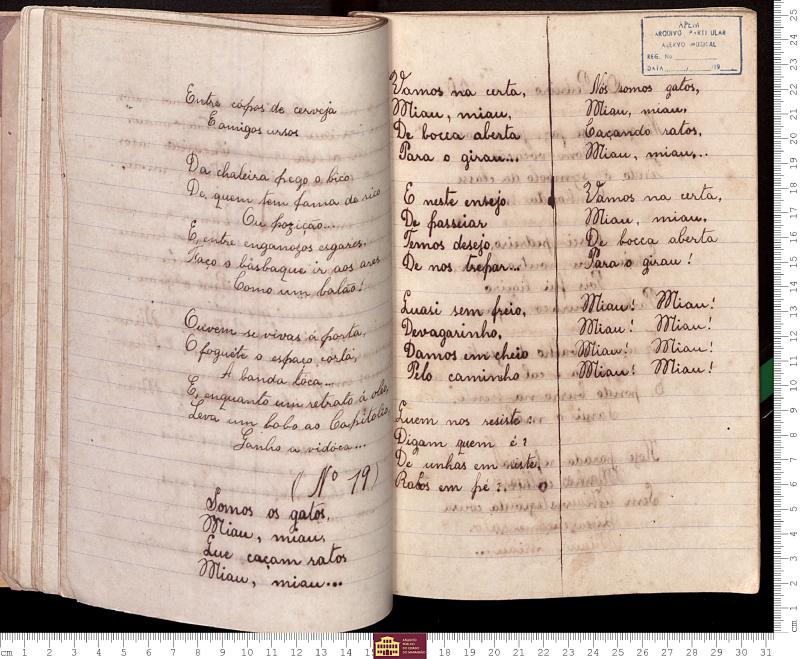 Entre cópos de cerveja
E amigos ursos
Da chaleira pego o bico
De quem tem fama de rico
Ou pozição...
E, entre enganozos esgares,
Faço o basbaque ir aos ares
Como um balão!
Ouvem-se vivas á porta,
O foguête o espaço córta,
A banda tóca...
E, enquanto um retrato á oleo,
Leva um bobo ao Capitolio,
Ganho a vidóca...
(Nº 19)
Somos os gatos,
Miau, miau,
Que caçam ratos
Miau, miau...
Vamos na certa,
Miau, miau,
De bocca aberta
Para o girau...
E neste ensejo
De passeiar
Temos desejo,
De nos trepar...
Quasi sem freio,
Devagarinho,
Damos em cheio
Pelo caminho
Quem nos resiste?
Digam quem é?
De unhas em riste,
Rabos em pé?
Nós somos gatos,
Miau, miau,
Caçando ratos,
Miau, miau...
Vamos na certa,
Miau, miau,
De bocca aberta
Para o girau!
Miau! Miau!
Miau! Miau!
Miau! Miau!
Miau! Miau!
APEM
ARQUIVO PARTICULAR
ACERVO MUSICAL
REG. No
DATA / /19
ARQUIVO
PÚBLICO
DO ESTADO
DO MARANHÃO
cm 1 2 3 4 5 6 7 8 9 10 11 12 13 14 15 17 18 19 20 21 22 23 24 25 26 27 28 29 30 31
cm 1 2 3 4 5 6 7 8 9 10 11 12 13 14 15 16 17 18 19 20 21 22 23 24 25